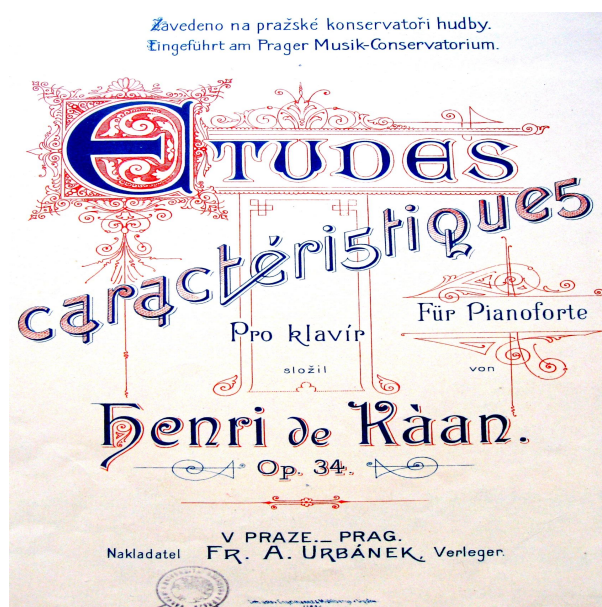 Zavedeno na pražské konservatoři hudby.
Eingeführt am Prager Musik-Conservatorium.
ETUDES
caractéristiques
Pro klavír
Für Pianoforte
složil
von
Henri de Kàan.
Op. 34.
V PRAZE._ PRAG.
Nakladatel FR. A. URBÁNEK, Verleger.